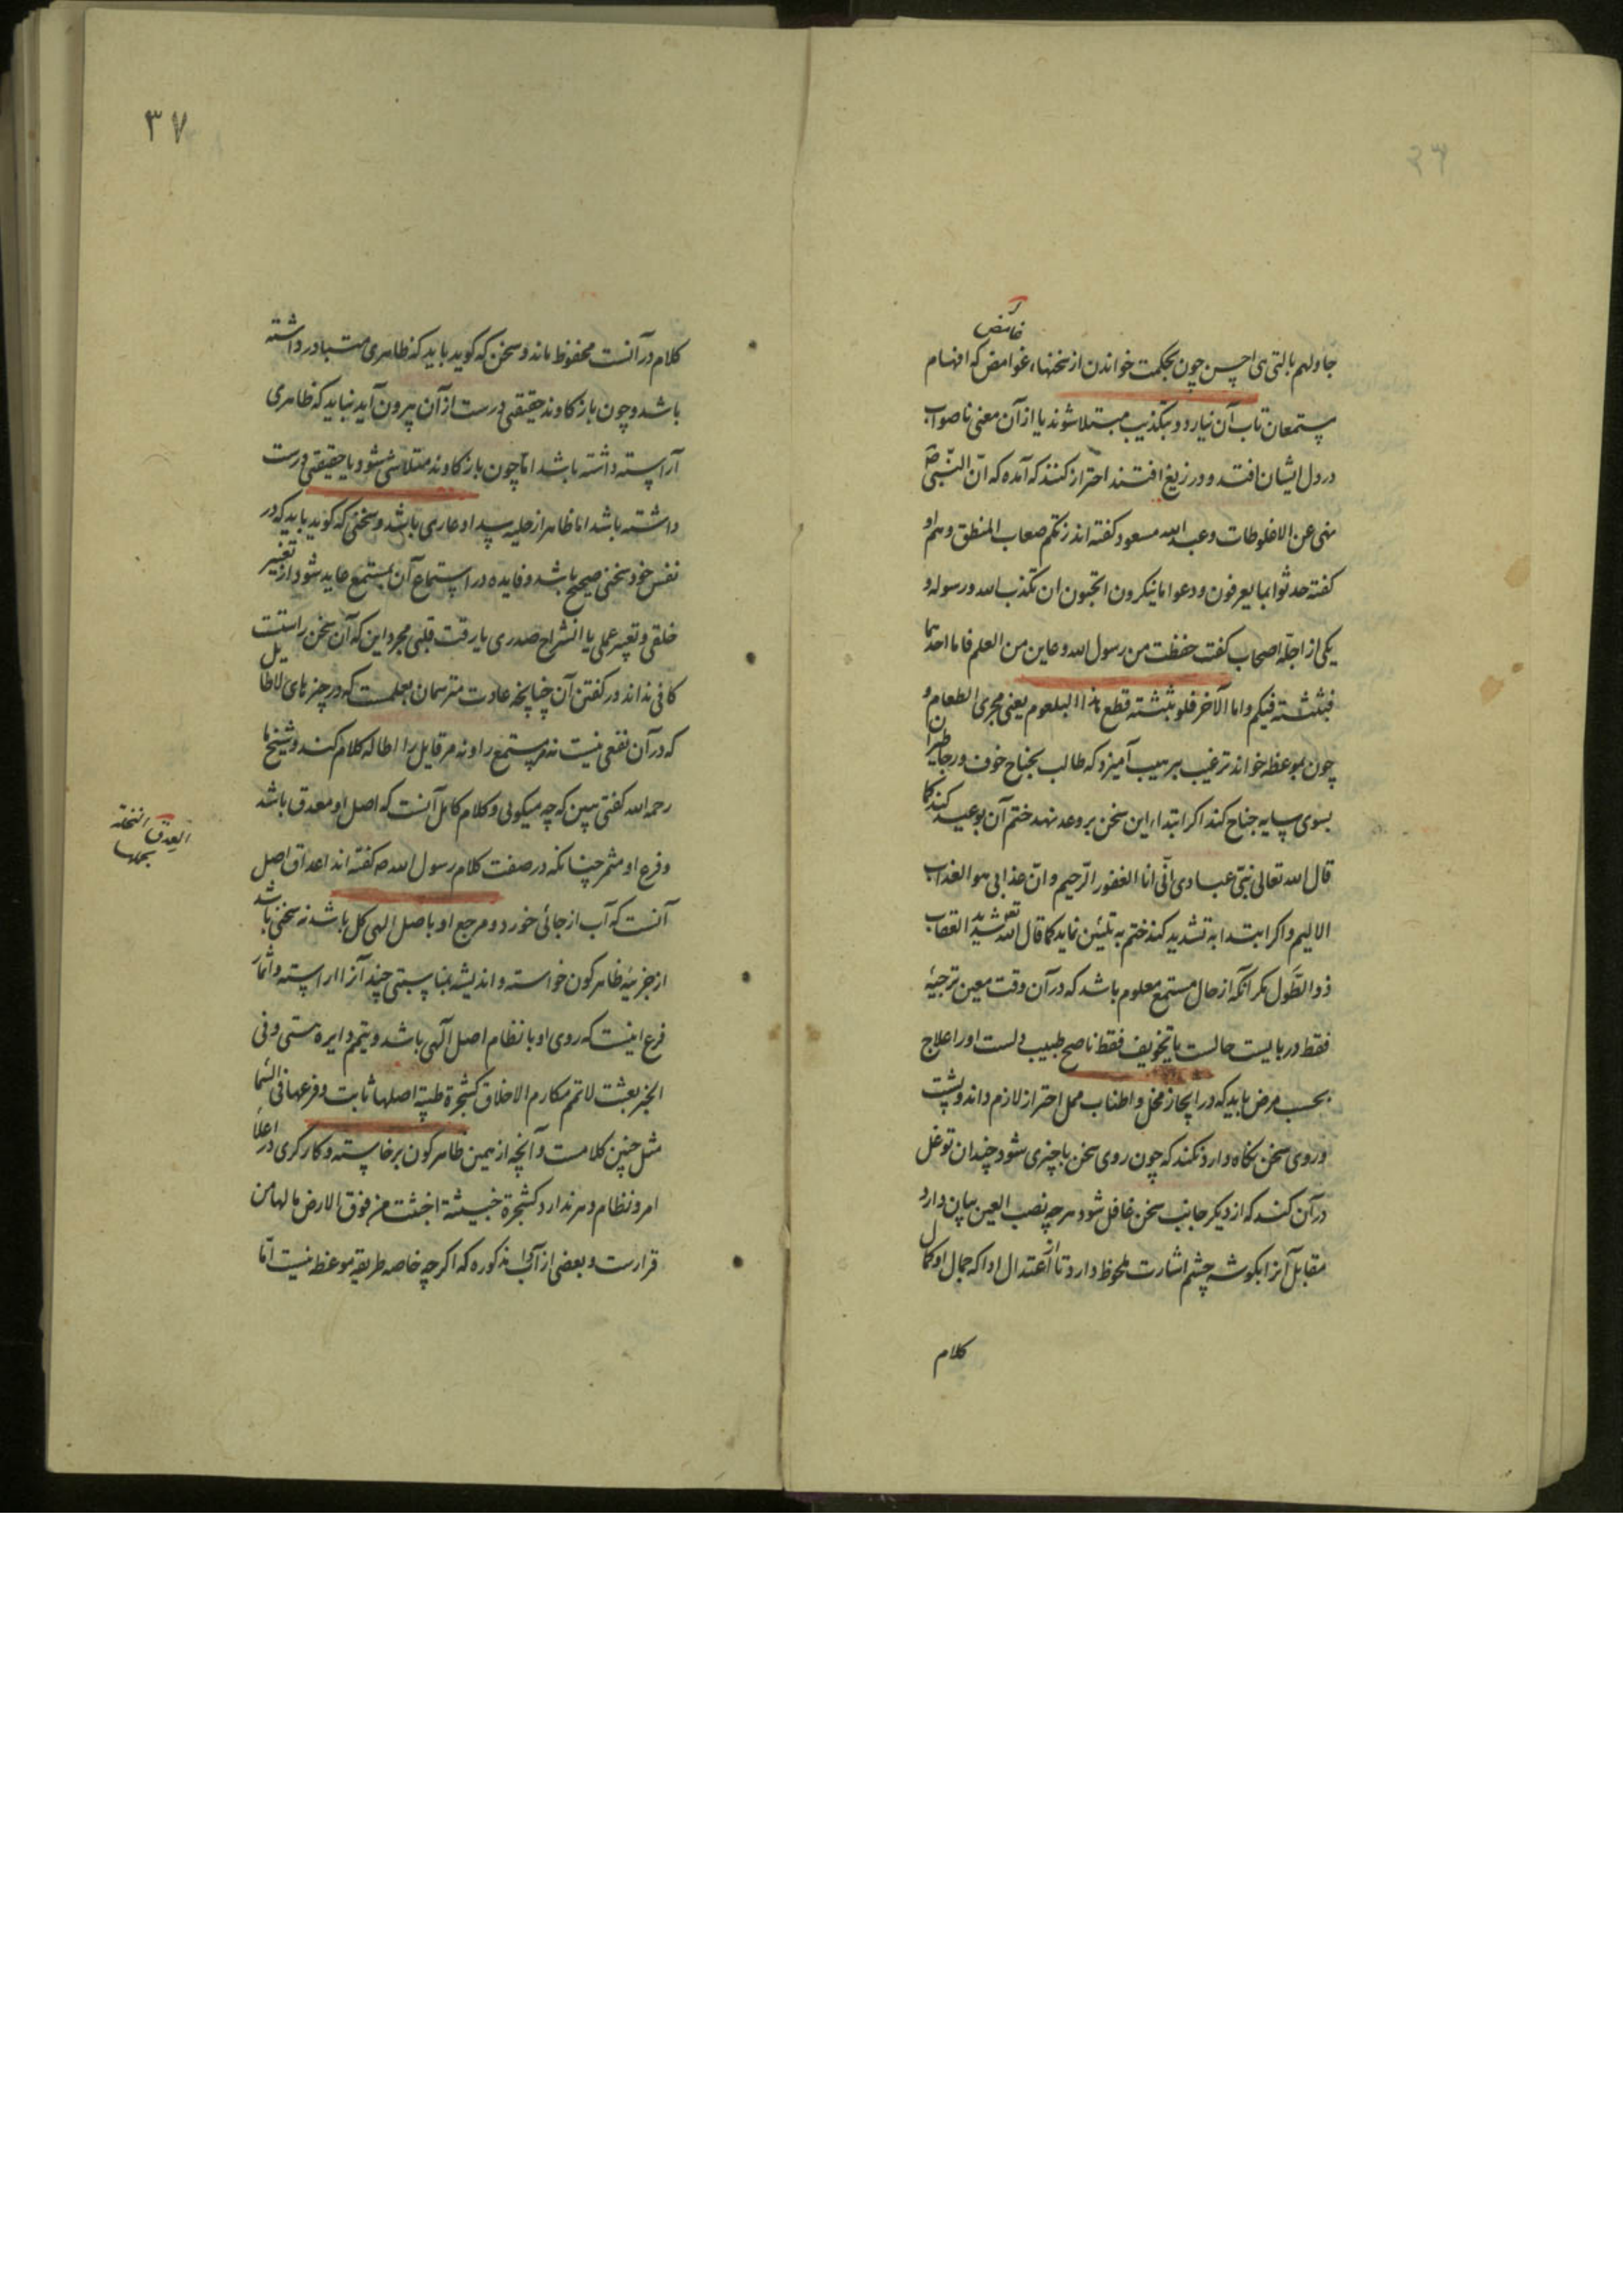 ۳۶
غامض
جادلهم بالتی هی احسن چون بحکمت خواندن از سخنهاء غوامض که افهام
مستمعان تاب آن نیارد و بتکذیب مبتلا شوند یا از آن معنی ناصواب
در دل ایشان افتد و در زیغ افتند احتراز کنند که آمده که انّ النّبی ص
نهی عن الاغلوطات و عبد الله مسعود گفته انذرتکم صعاب المنطق و هم او
گفته حدثوا بما یعرفون و دعوا ما ینکرون اتحبون ان یکذب الله و رسوله و
یکی از اجلّه اصحاب گفت حفظت من رسول الله وعاین من العلم فاما احدهما
فبثثته فیکم و اما الآخر فلو بثثته قطع هذا البلعوم یعنی مجری الطعام و
چون بموعظه خواند ترغیب بترهیب آمیزد که طالب بجناح خوف و رجا طیران
بسوی سایه جناح کند اگر ابتداء این سخن بر وعد نهد ختم آن بوعید کند کما
قال الله تعالی نبّئ عبادی انّی انا الغفور الرّحیم و انّ عذابی هو العذاب
الالیم و اگر ابتدا به تشدید کند ختم به تلیین نماید کما قال الله تع شدید العقاب
ذو الطَّول مگر آنکه از حال مستمع معلوم باشد که در آن وقت معین ترجیه
فقط در بایست حالست یا تخویف فقط ناصح طبیب دلست او را علاج
بحسب مرض باید که در ایجاز مخل و اطناب ممل احتراز لازم داند و پشت
و روی سخن نگاه دارد نکند که چون روی سخن با چیزی شود چندان توغل
در آن کند که از دیگر جانب سخن غافل شود هر چه نصب العین بیان دارد
مقابل آنرا بگوشه چشم اشارت ملحوظ دارد تا از اعتدال ادا که جمال او کمال
کلام
۳۷
کلام در آنست محفوظ ماند و سخن که گوید باید که ظاهری متبادر داشته
باشد و چون باز کاوند حقیقتی درست از آن بیرون آید نباید که ظاهری
آراسته داشته باشد امّا چون باز کاوند متلاشی شود و یا حقیقتی درست
داشته باشد اما ظاهر از حلیه سداد عاری باشد و سخنی که گوید باید که در
نفس خود سخنی صحیح باشد و فایده در استماع آن بمستمع عاید شود از تغییر
خلقی و تغییر عملی یا انشراح صدری یا رقت قلبی مجرد این که آن سخن راستست
کافی نداند در گفتن آن چنانچه عادت مترسمان بعلمست که در چیزهای لاطایل
که در آن نفعی نیست نه مر مستمع را و نه مر قایل را اطاله کلام کنند و شیخ ما
رحمه الله گفتی ببین که چه میگویی و کلام کامل آنست که اصل او معدق باشد
و فرع او مثمر چنانکه در صفت کلام رسول الله ص گفته اند اعداق اصل
آنست که آب از جائی خورد و مرجع او با اصل الهی کل باشد نه سخنی باشد
از جزئیه ظاهر کون خواسته و اندیشه بمناسبتی چند آنرا آراسته و اثمار
فرع اینست که روی او با نظام اصل آلهی باشد و یتمم دایره هستی و فی
الخبر بعثت لاتمم مکارم الاخلاق کشجرة طیبة اصلها ثابت و فرعها فی السّما
مثل چنین کلامست و آنچه از همین ظاهر کون برخاسته و کارگری در اعلا
امر و نظام دهر ندارد کشجرة خبیثة اجتثت من فوق الارض ما لها من
قرارست و بعضی از آداب مذکوره که اگر چه خاصه طریقه موعظه نیست امّا
العدق النخلة
بحملها